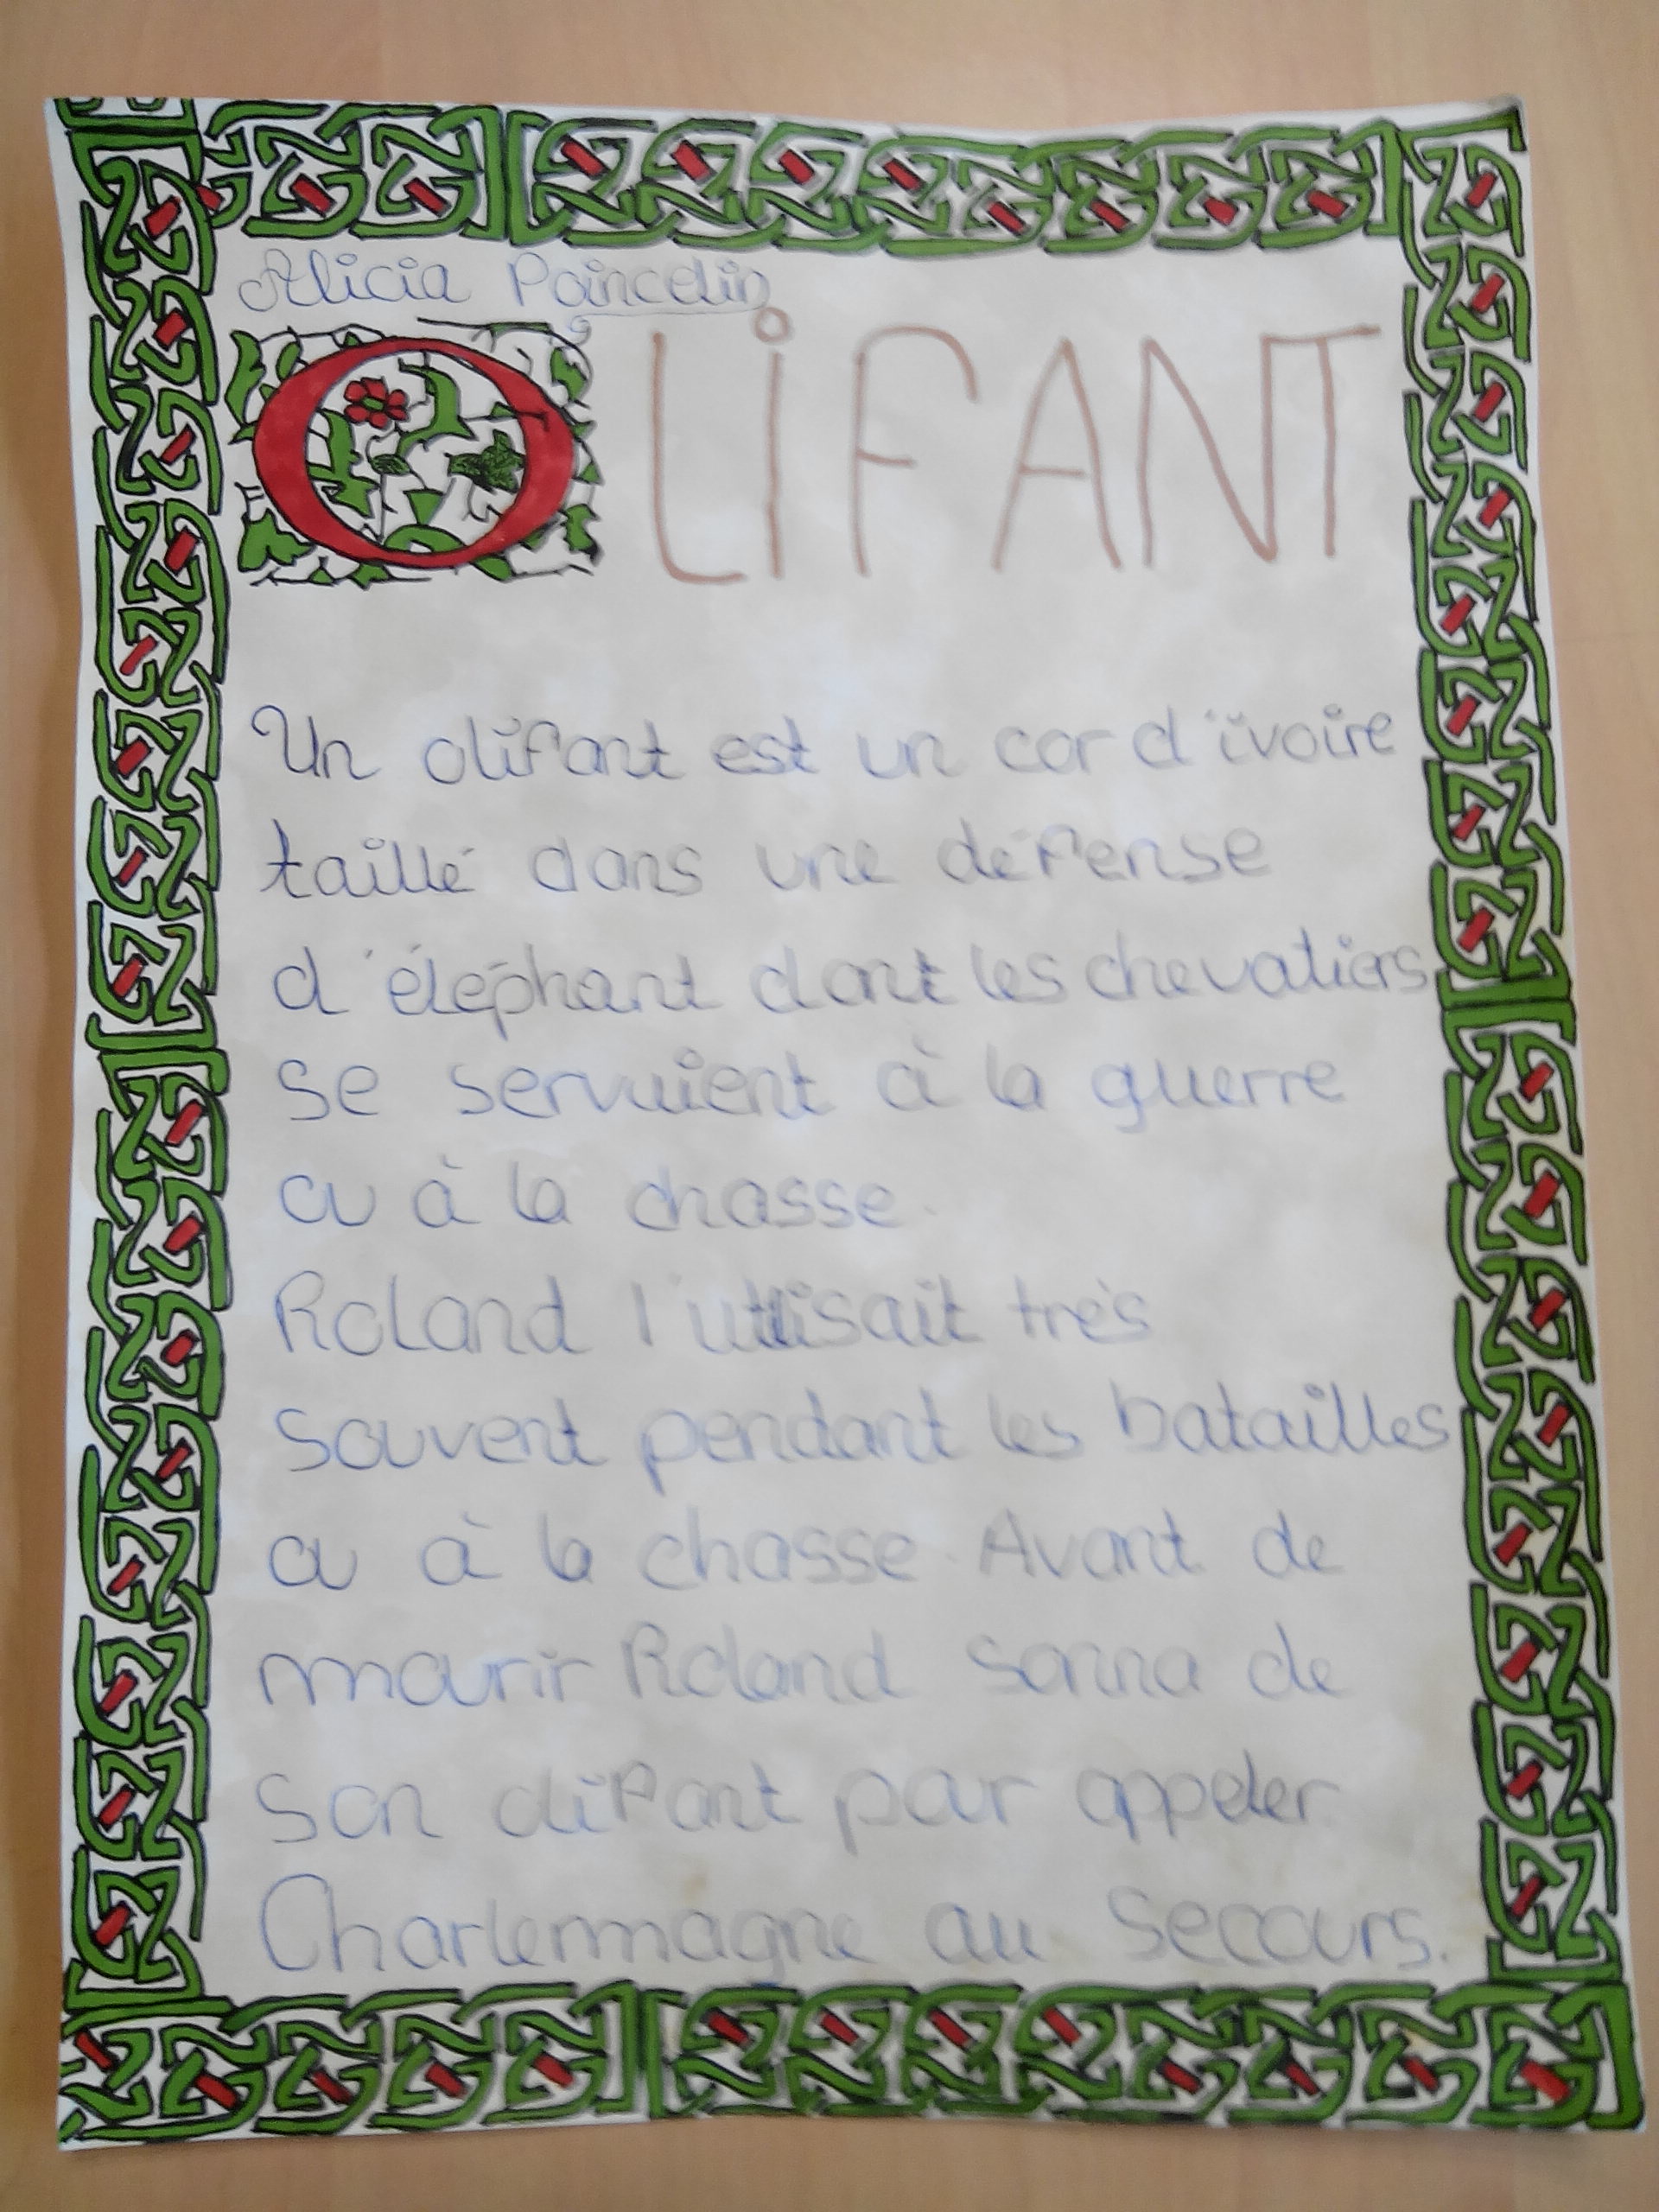 Alicia Poincelin
OLiFANT
Un olifant est un cor d'ivoire
taillé dans une défense
d'éléphant dont les chevaliers
se servaient à la guerre
ou à la chasse.
Roland l'utilisait très
souvent pendant les batailles
ou à la chasse. Avant de
mourir Roland sonna de
son olifant pour appeler
Charlemagne au secours.